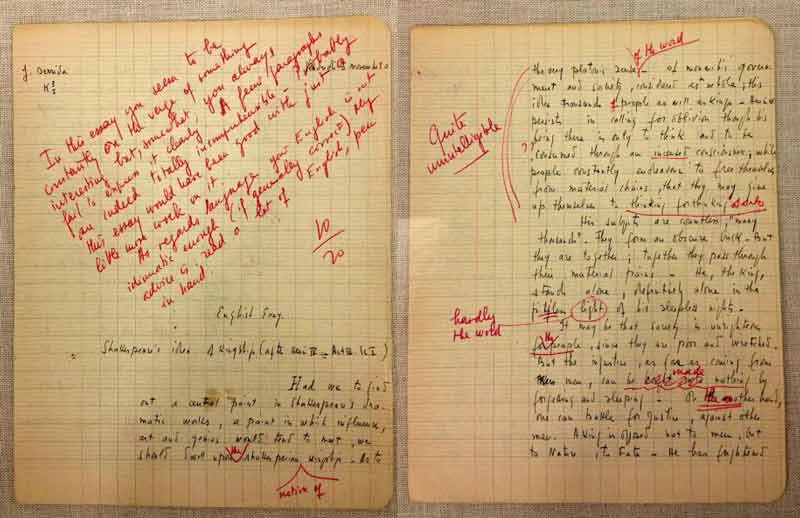 J. Derrida
K 2
In this essay you seem to be
constantly on the verge of something
interesting but, somewhat, you always
fail to explain it clearly. A few paragraphs
are indeed totally incomprehensible. Probably
this essay would have been good with just a
little more work in it.
As regards language your English is not
idiomatic enough (if generally correct). My
advice is : read a lot of English, pen
in hand.
10
20
English Essay.
Shakespeare's idea of kingship (after Henri IV - Act III. Sc I)
Had we to find
out a central point in Shakespeare's dra-
matic works, a point in which influence,
art and genius would tend to meet, we
should dwell upon the Shakespearian kingship - As to
notion of
of the word
the very platonic sense of monarchic govern-
ment and society, considered as whole ; this
idea thousands of people as well as kings -
persists in calling for oblivion though his
being there is only to think and to be
consumed through an incensed consciousness, while
people constantly endeavour to free themselves
from material chains, that they may give
up themselves to thinking for thinking's sake
Quite
unintelligible
??
His subjects are countless, "many
thousands". They form an obscure bulk - But
they are together ; together they pass through
their material pains - He, the King,
stands alone, definitively alone in the
light of his sleepless nights -
hardly
the word
It may be that society is unrighteous
for the people, since they are poor and wretched.
But the injustice, as far as coming from
men, can be made nothing by
forgetting and sleeping - On the another hand,
one can battle for justice, against other
men. A King is opposed not to men, but
to Nature, to Fate - He has frightened